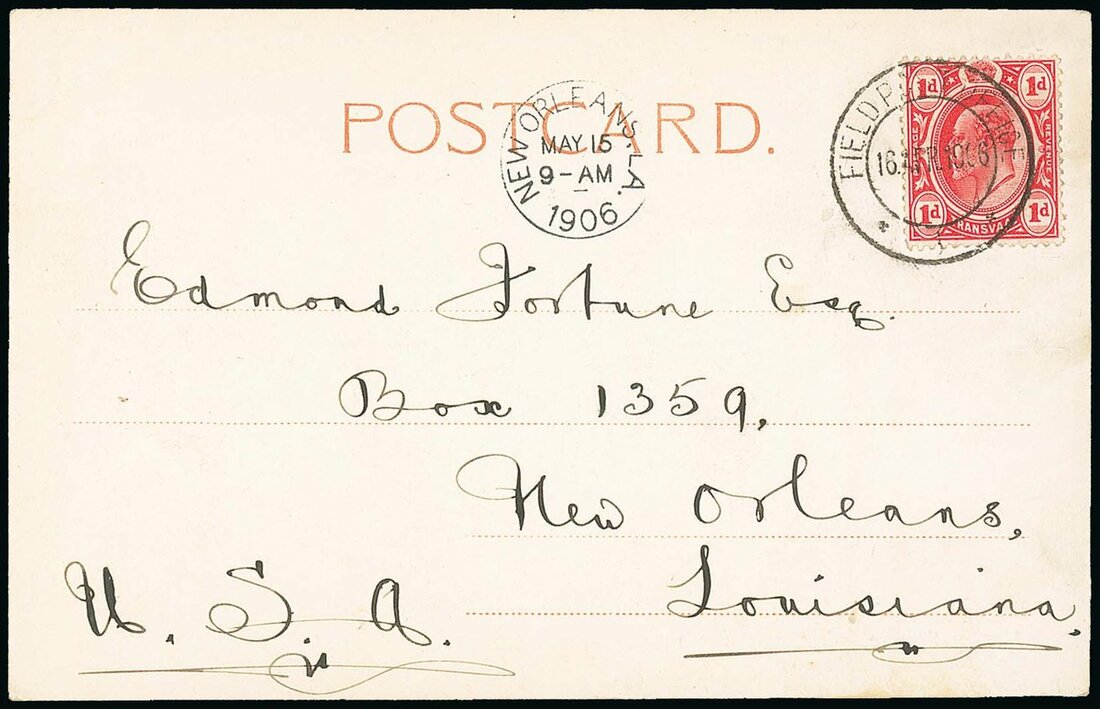 POSTCARD.
NEW ORLEANS, LA.
MAY 15
9-AM
1906
FIELD P
16 1906
1d 1d
POSTAGE REVENUE
1d 1d
TRANSVAAL
Edmond Fortune Esq.
Box 1359,
New Orleans,
Louisiana,
U. S. A.